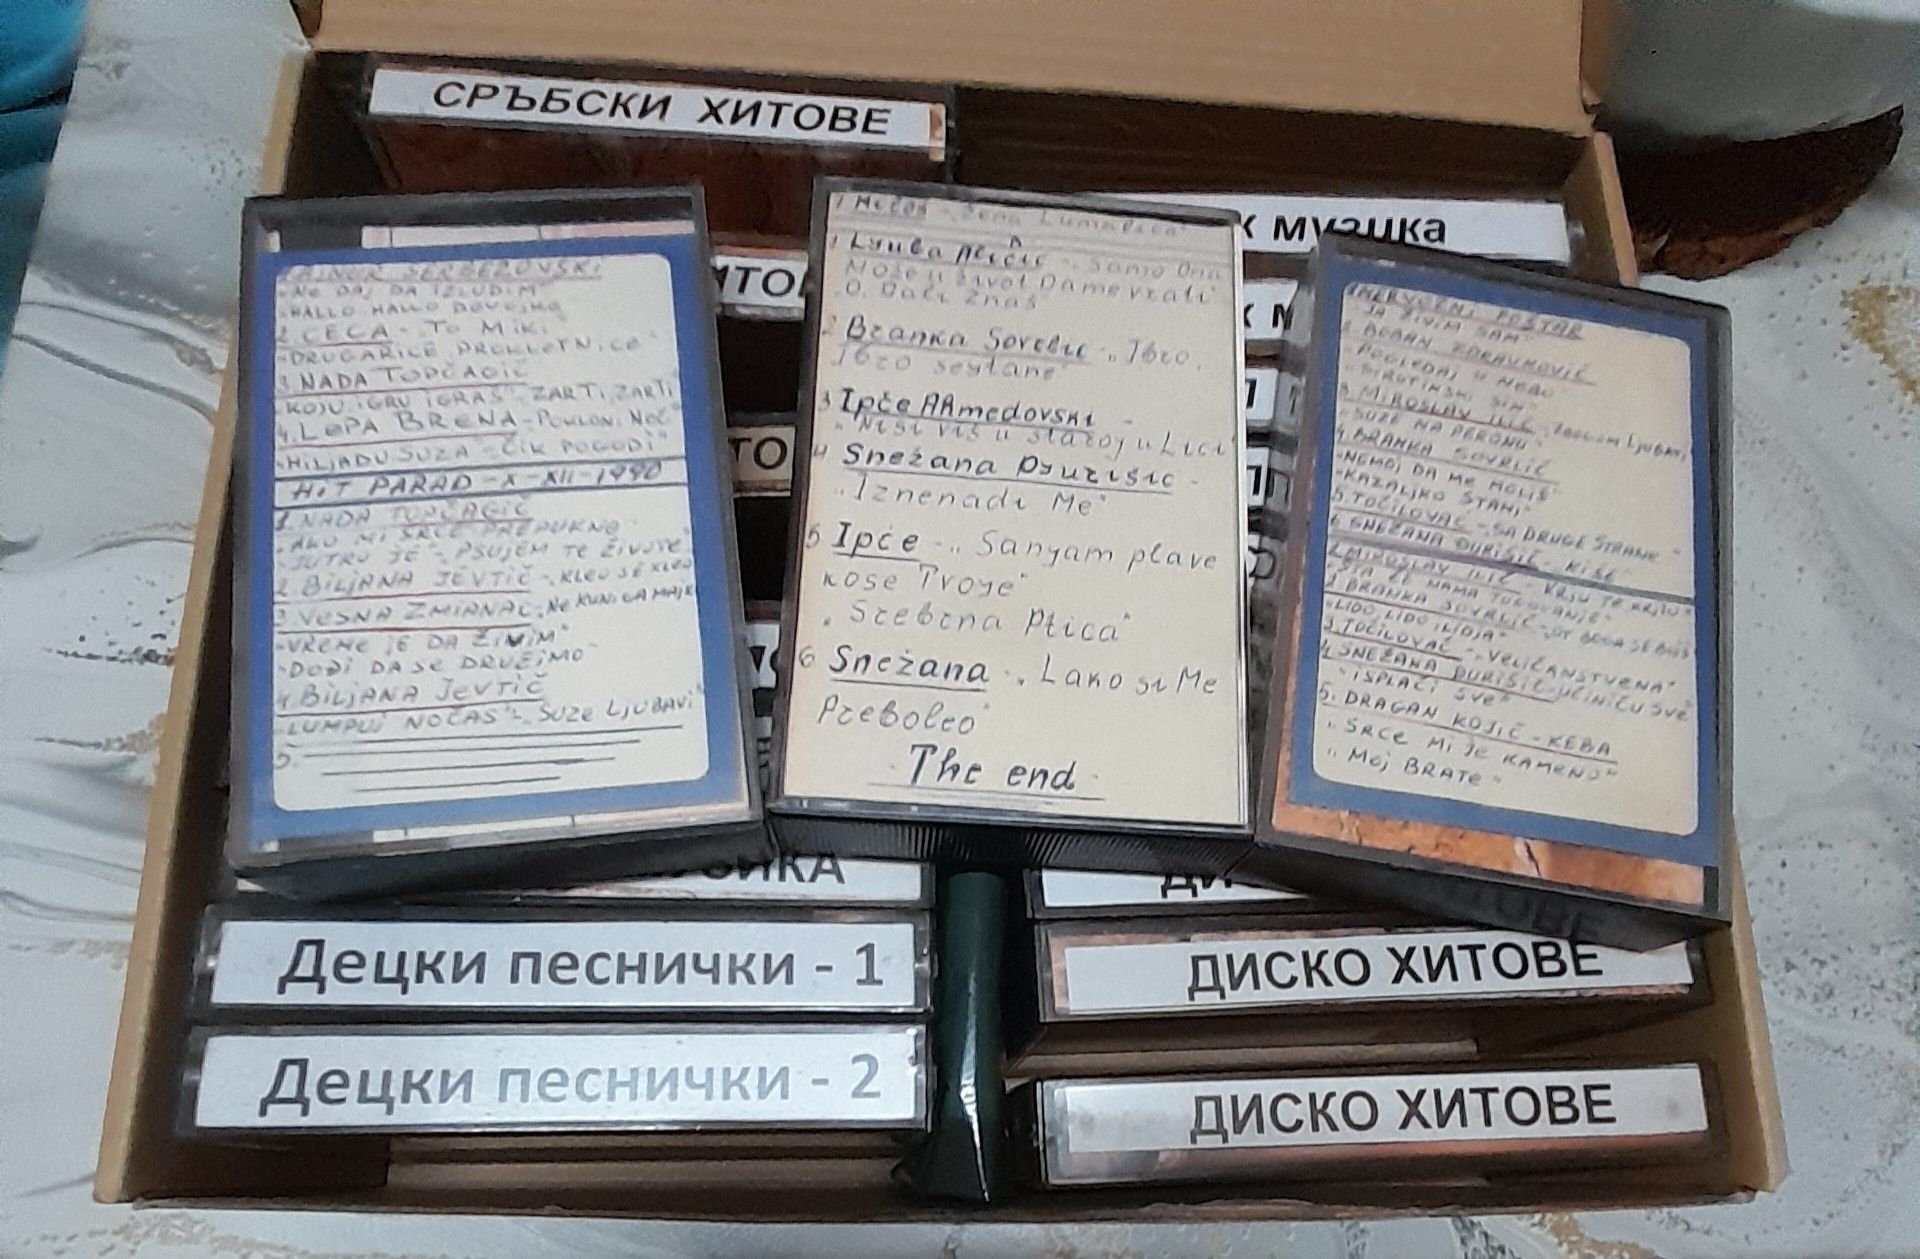 СРЪБСКИ ХИТОВЕ
к музика
SERBEROVSKI
"NE DAJ DA IZLUDIM"
"HALLO HALLO DEVOJKO
2. CECA - "TO MIKI"
"DRUGARICE PROKLETNICE"
3. NADA TOPČAGIĆ
"KOJU IGRU IGRAŠ" - ZARTI, ZARTI
4. LEPA BRENA - POKLONI NOĆ"
"HILJADU SUZA" - "ČIK POGODI"
HIT PARAD - X - XII - 1990
1. NADA TOPČAGIĆ
"AKO MI SRCE PREPUKNE"
"JUTRO JE" - "PSUJEM TE ŽIVOTE"
2. BILJANA JEVTIĆ - "KLEO SE KLEO
3. VESNA ZMIANAC - "NE KUNI GA MAJKO
"VREME JE DA ŽIVIM"
"DOĐI DA SE DRUŽIMO"
4. BILJANA JEVTIĆ
"LUMPUJ NOĆAS" - "SUZE LJUBAVI"
5.
1 Miloš - "Žena Lumalica"
1 Lyuba Aličić - "Samo Ona
Može u život Dame vrati"
"O. Dali Znaš"
2 Branka Sovrlic - "Ibro,
Ibro seytane"
3 Ipče AAmedovski -
"Nisi viš u staroj uLici"
4 Snežana Dyurišic -
"Iznenadi Me"
5 Ipče - "Sanyam plave
kose Troye"
"Srebrna Ptica"
6 Snežana - "Lako si Me
Preboleo"
The end
1. NERVOZNI POŠTAR
"JA ŽIVIM SAM"
2. BOBAN ZDRAVKOVIĆ
"POGLEDAJ U NEBO
"SIROTINSKI SIN"
3. MIROSLAV ILIĆ - "ZBOGOM LJUBAVI
"SUZE NA PERONU"
4. BRANKA SOVRLIĆ
"NEMOJ DA ME MOLIŠ"
"KAZALJKO STANI"
5. TOČILOVAC - "SA DRUGE STRANE"
6. SNEŽANA ĐURIŠIĆ - "KIŠE"
1. MIROSLAV ILIĆ - "KRJU TE KRJU"
"ŠTA ĆE NAMA TUGOVANJE"
2. BRANKA SOVRLIĆ - "OT BOGA SE BOJŠ
"LIDO LIDO ILIDJA"
3. TOČILOVAC - "VELIČANSTVENA"
4. SNEŽANA ĐURIŠIĆ - UČINIĆU SVE
"ISPLAČI SVE"
5. DRAGAN KOJIĆ - KEBA
"SRCE MI JE KAMENO"
"MOJ BRATE"
Децки песнички - 1
ДИСКО ХИТОВЕ
Децки песнички - 2
ДИСКО ХИТОВЕ